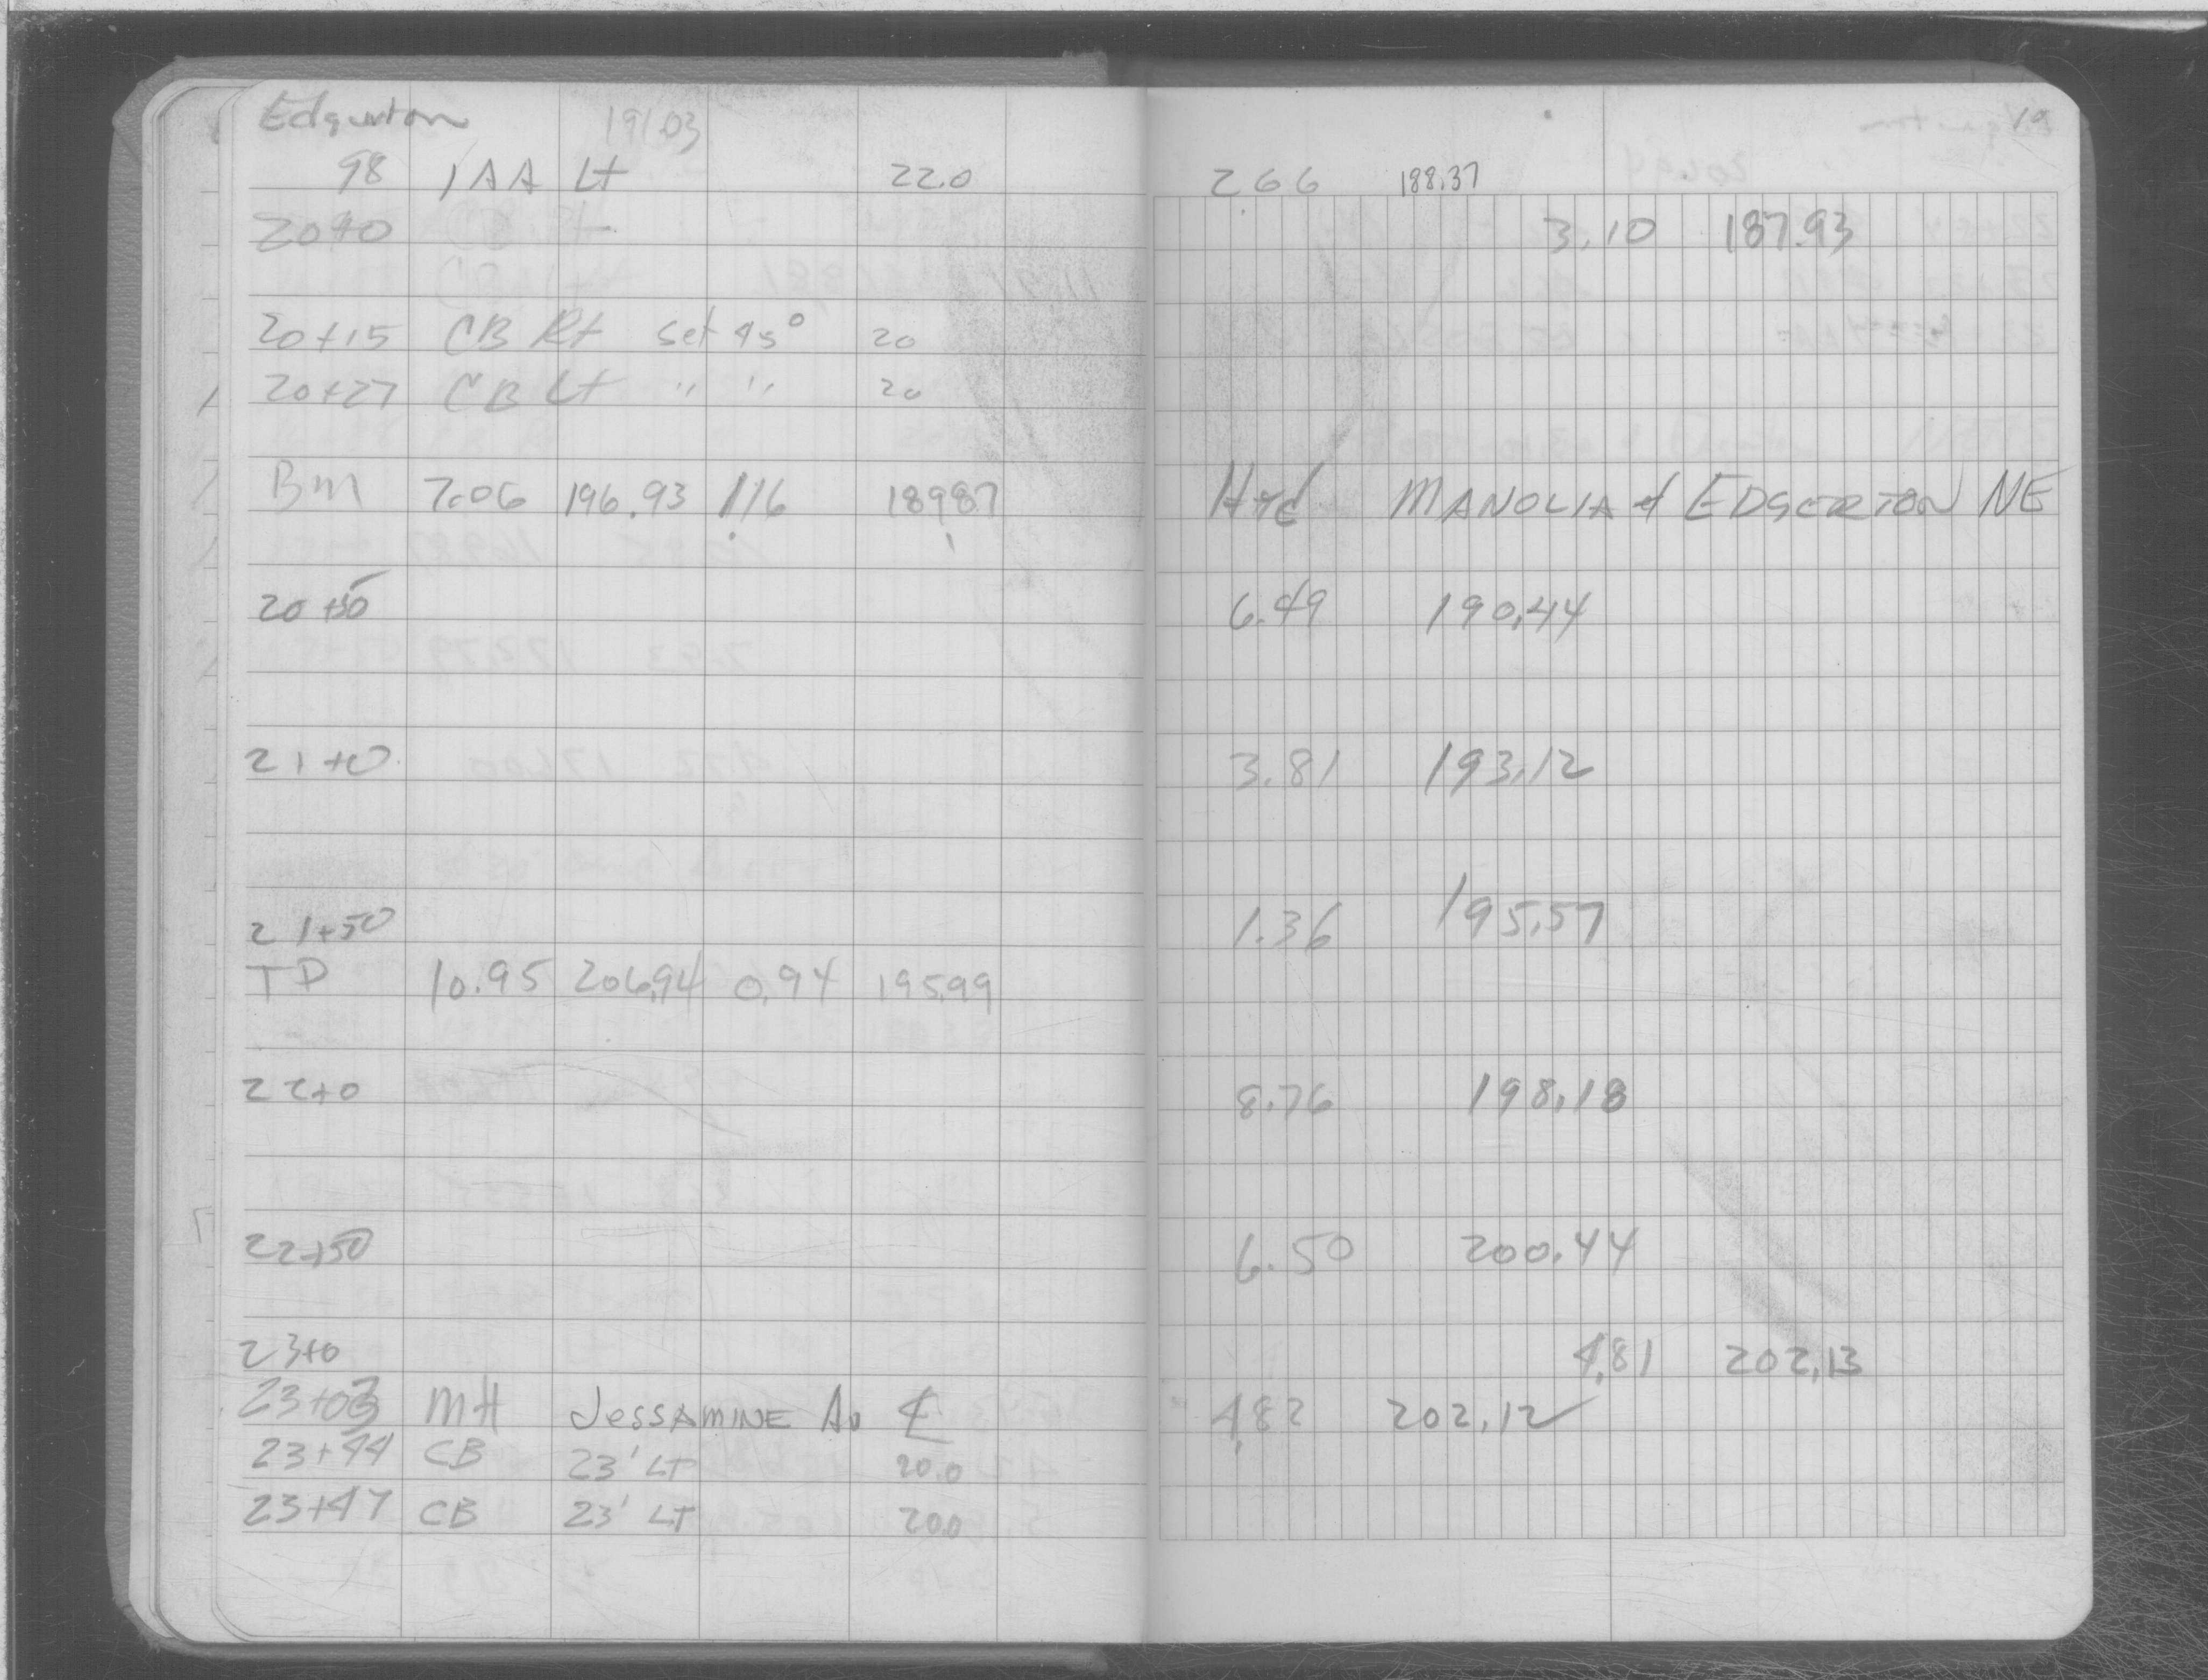 Edgerton 191.03 10
98 1AA Lt 22.0 2.66 188.37
20+0 3.10 187.93
20+15 CB Rt set 45° 20
20+27 CB Lt " " 20
BM 7.06 196.93 1.16 189.87 Hyd MANOLIA & EDGERTON NE
20+50 6.49 190.44
21+0 3.81 193.12
21+50 1.36 195.57
TP 10.95 206.94 0.94 195.99
22+0 8.76 198.18
22+50 6.50 200.44
23+0 4.81 202.13
23+03 MH JESSAMINE Av ℄ 4.82 202.12
23+44 CB 23' LT 20.0
23+47 CB 23' LT 20.0